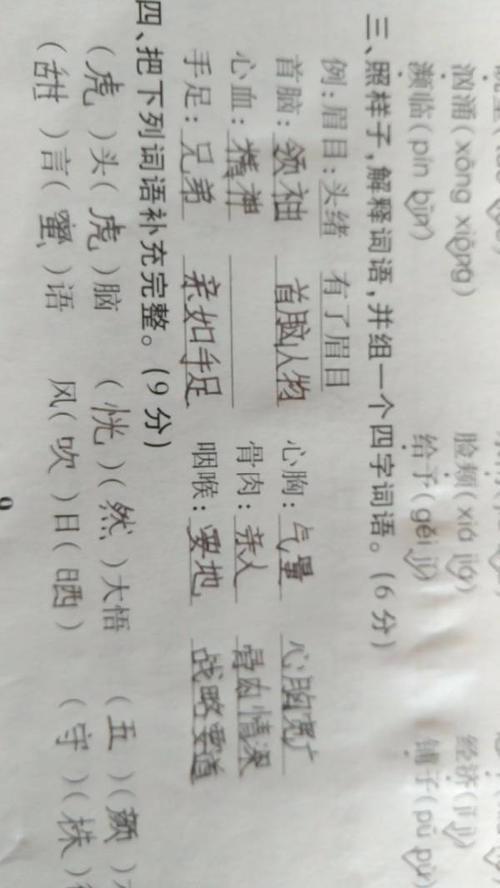 汹涌(xōng xiōng) 脸颊(xiá jiá) 经济(jǐ jì)
濒临(pín bīn) 给予(gěi jǐ) 铺子(pū pù)
三、照样子,解释词语,并组一个四字词语。(6分)
例:眉目:头绪 有了眉目
首脑:领袖 首脑人物 心胸:气量 心胸宽广
心血:精神 骨肉:亲人 骨肉情深
手足:兄弟 亲如手足 咽喉:要地 战略要道
四、把下列词语补充完整。(9分)
(虎)头(虎)脑 (恍)(然)大悟 (五)(颜)
(甜)言(蜜)语 风(吹)日(晒) (守)(株)
9